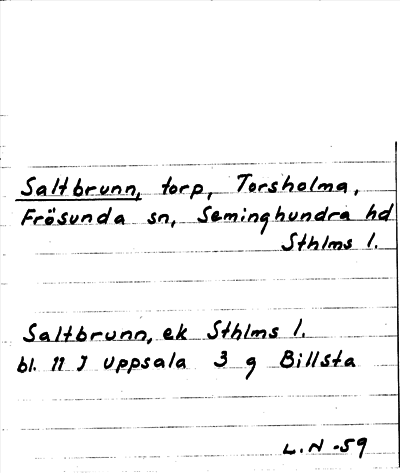 Saltbrunn, torp, Torsholma,
Frösunda sn, Seminghundra hd
Sthlms l.
Saltbrunn, ek Sthlms l.
bl. 11 J Uppsala 3 g Billsta
L.N -59